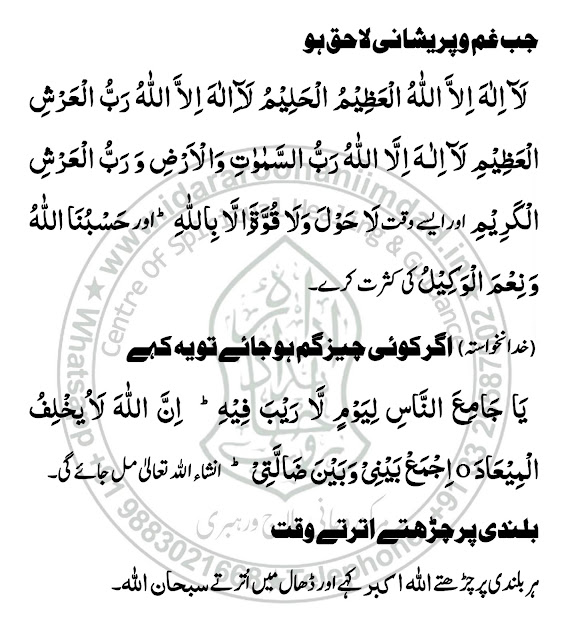 جب غم و پریشانی لاحق ہو
لَآ اِلٰهَ اِلاَّ اللّٰهُ الْعَظِیْمُ الْحَلِیْمُ لَآاِلٰهَ اِلاَّ اللّٰهُ رَبُّ الْعَرْشِ
الْعَظِیْمِ لَآ اِلٰهَ اِلَّا اللّٰهُ رَبُّ السَّمٰوٰتِ وَالْاَرْضِ وَ رَبُّ الْعَرْشِ
الْکَرِیْمِ اور ایسے وقت لَا حَوْلَ وَلَا قُوَّةَ اِلَّا بِاللّٰهِ ؕ اور حَسْبُنَا اللّٰهُ
وَ نِعْمَ الْوَکِیْلُ کی کثرت کرے۔
(خدانخواستہ) اگر کوئی چیز گم ہو جائے تو یہ کہے
یَا جَامِعَ النَّاسِ لِیَوْمٍ لَّا رَیْبَ فِیْهِ ؕ اِنَّ اللّٰهَ لَا یُخْلِفُ
الْمِیْعَادَ o اِجْمَعْ بَیْنِیْ وَبَیْنَ ضَالَّتِیْ ؕ انشاء اللہ تعالیٰ مل جائے گی۔
بلندی پر چڑھتے اترتے وقت
ہر بلندی پر چڑھتے اللہ اکبر کہے اور ڈھال میں اُترتے سبحان اللہ۔